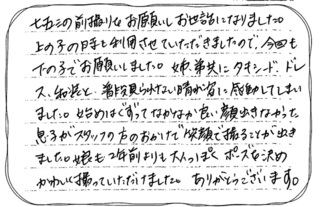 七五三の前撮りをお願いしお世話になりました。
上の子の時も利用させていただきましたので、今回も
下の子でお願いしました。姉、弟共にタキシード、ドレ
ス、和装と、普段見られない晴れ姿に感動してしまい
ました。始めはぐずってなかなか良い顔出きなかった
息子がスタッフの方のおかげで笑顔で撮ることが出き
ました。娘も2年前よりも大人っぽくポーズを決め
かわいく撮っていただけました。ありがとうございます。